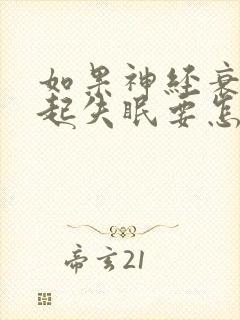 如果神经衰
起失眠要怎
帝玄21